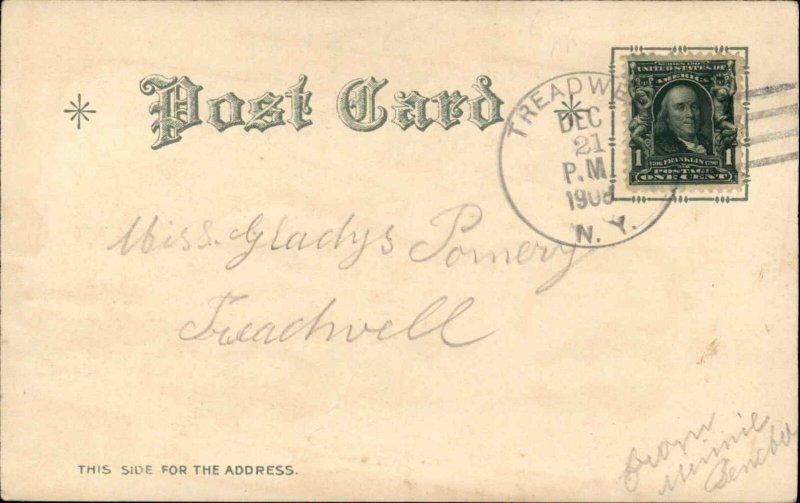 Post Card
TREADWE
DEC
21
P.M.
190
N. Y.
SERIES 1902
UNITED STATES OF
AMERICA
1 1706 FRANKLIN 1790 1
POSTAGE
ONE CENT
Miss. Gladys Pomery
Treadwell
THIS SIDE FOR THE ADDRESS.
From
Minnie